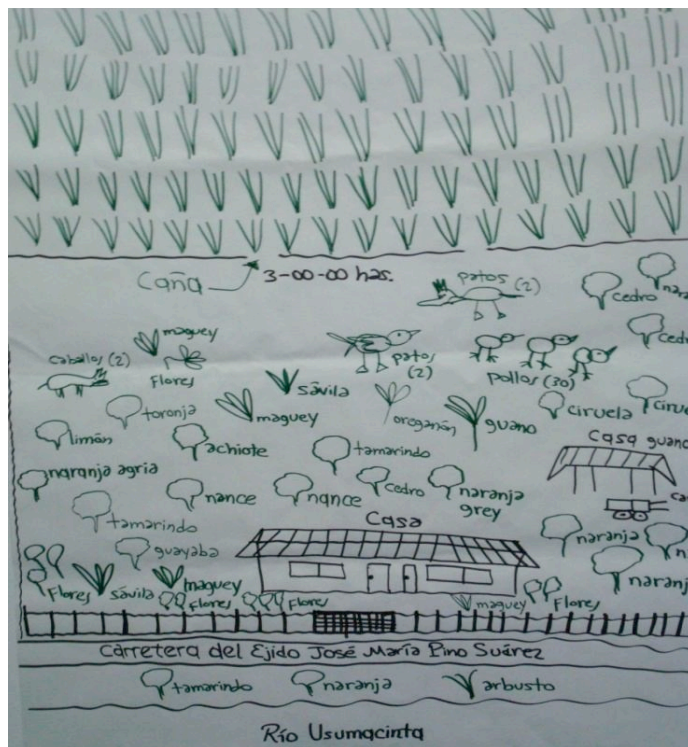 caña
3-00-00 has.
patos (2)
cedro
maguey
flores
caballos (2)
patos
(2)
pollos (30)
sávila
toronja
maguey
oroganón
guano
ciruela
limón
achiote
tamarindo
casa guano
naranja agria
nance
nance
cedro
naranja
grey
tamarindo
guayaba
casa
naranja
naranj
flores
sávila
maguey
flores
flores
maguey
flores
carretera del Ejido José María Pino Suárez
tamarindo
naranja
arbusto
Río Usumacinta